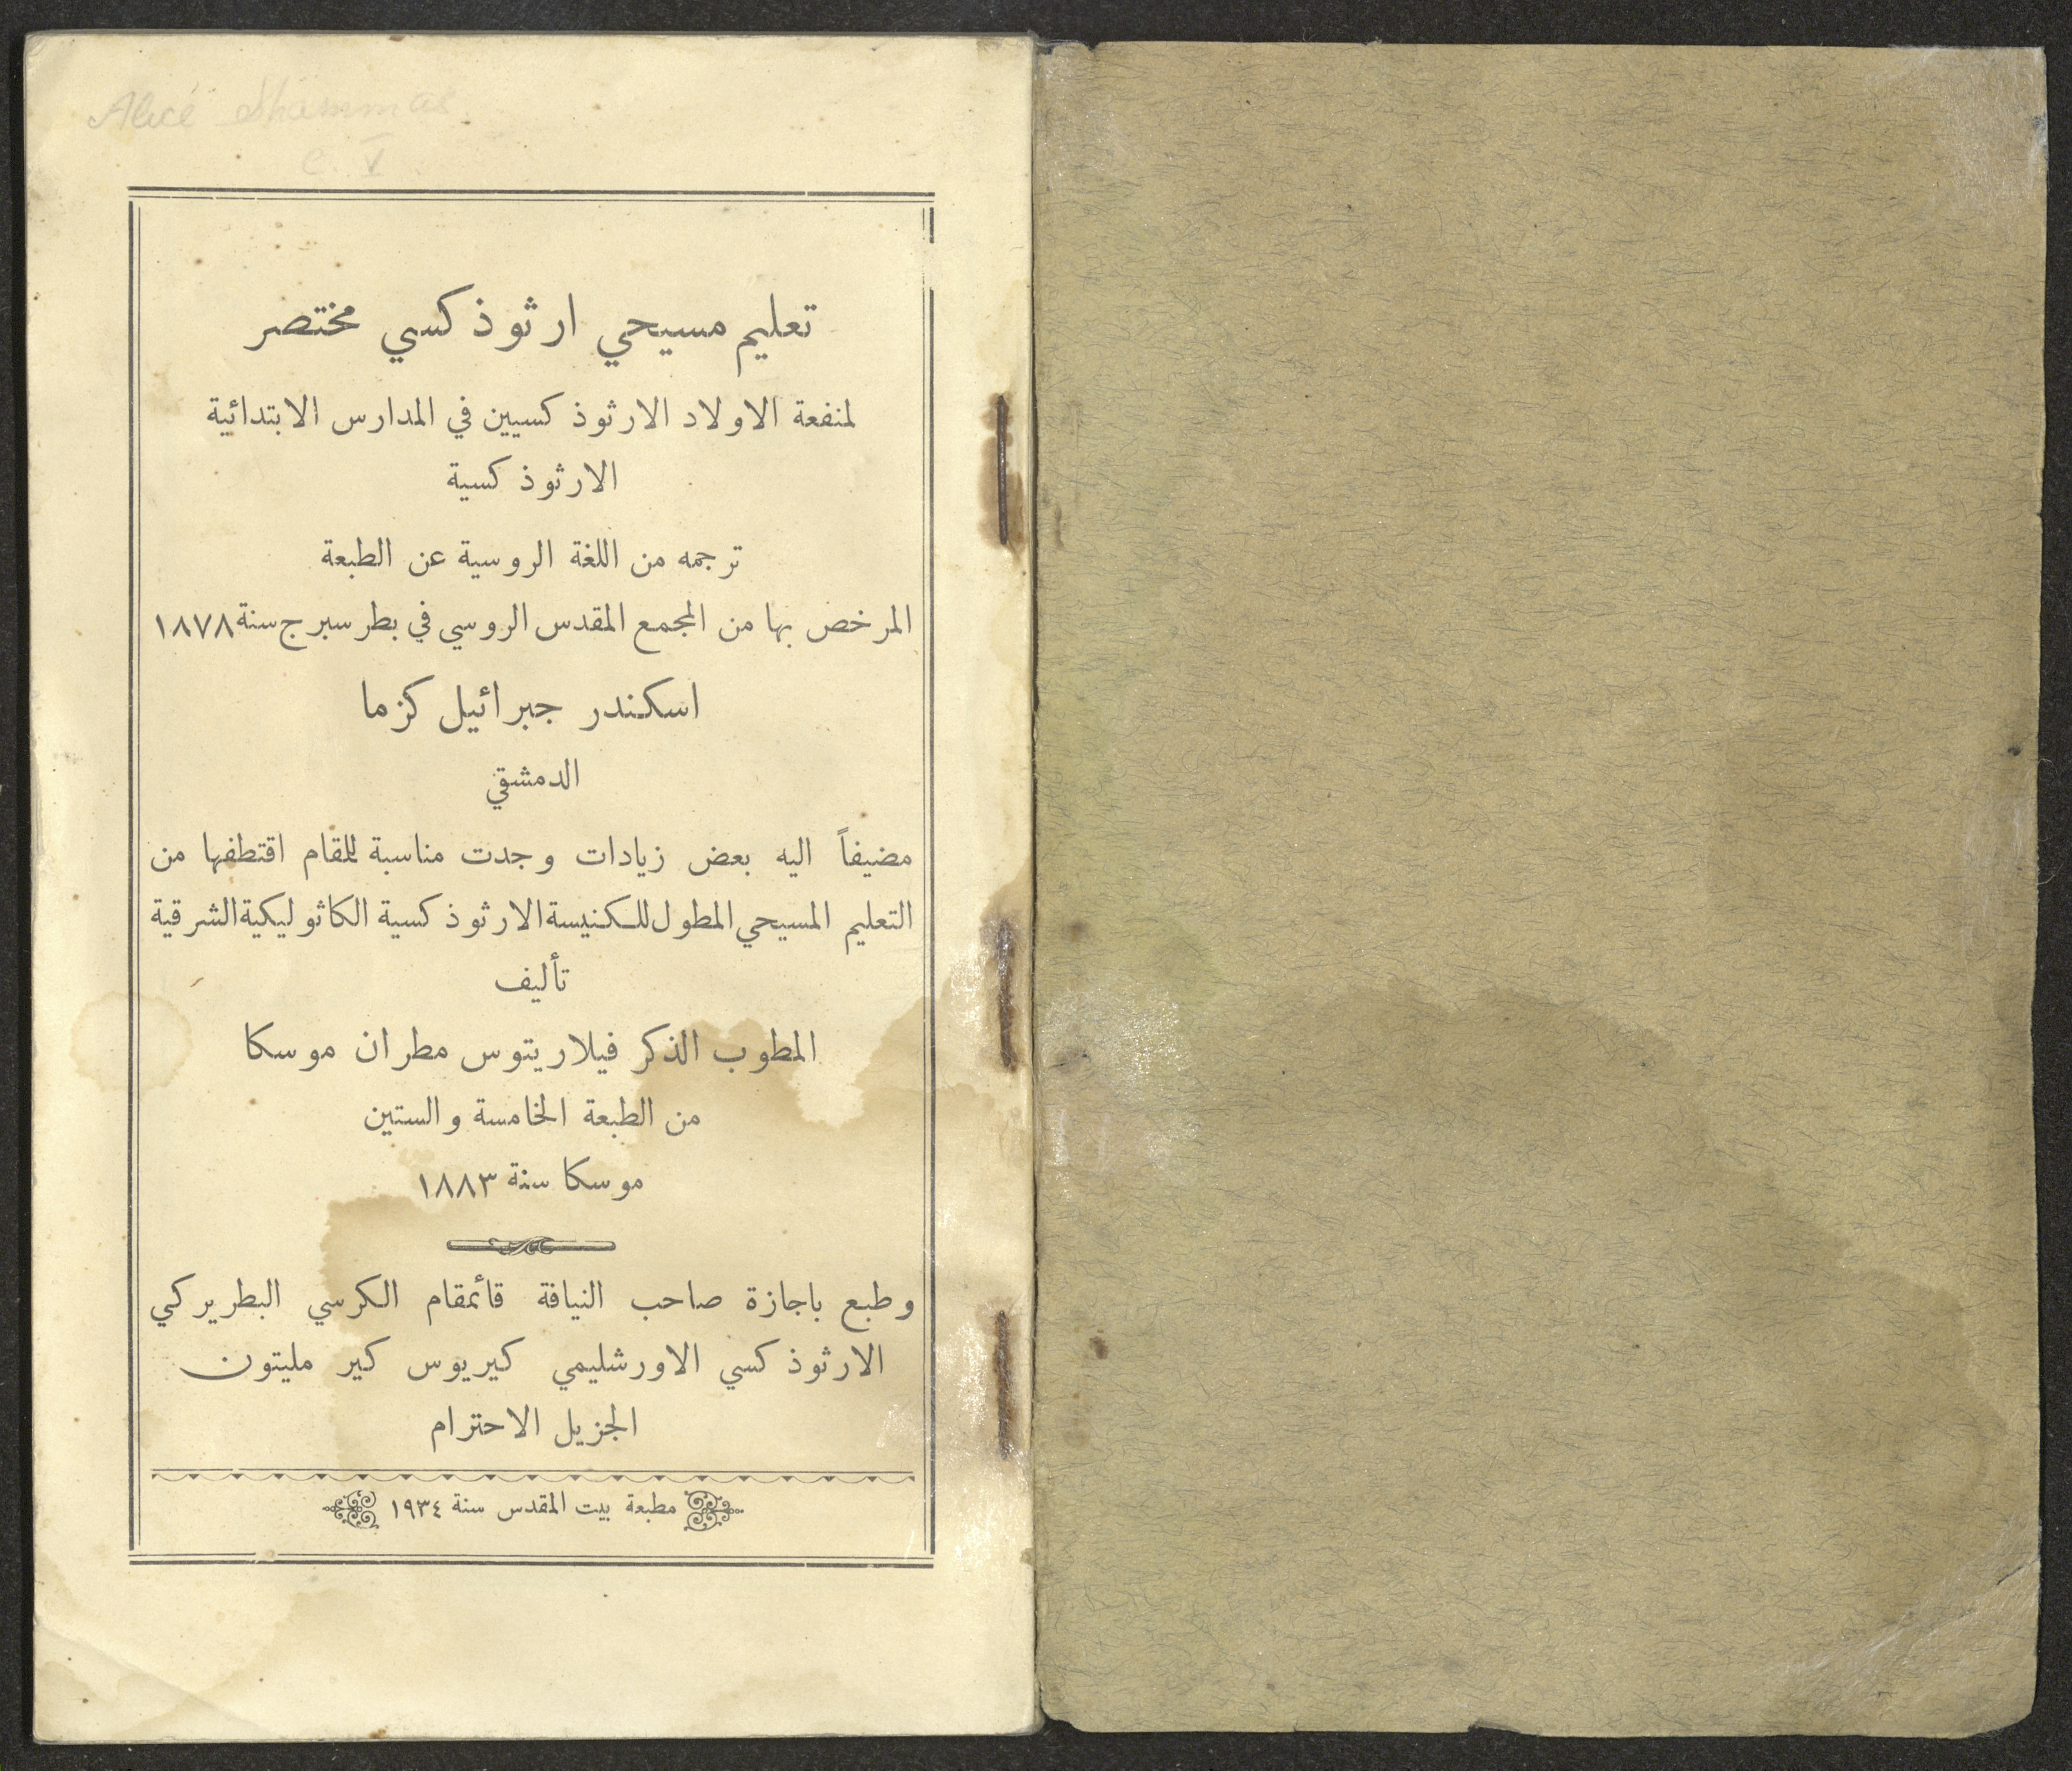 Alice Shammas
C. V
تعليم مسيحي ارثوذكسي مختصر
لمنفعة الاولاد الارثوذكسيين في المدارس الابتدائية
الارثوذكسية
ترجمه من اللغة الروسية عن الطبعة
المرخص بها من المجمع المقدس الروسي في بطرسبرج سنة ١٨٧٨
اسكندر جبرائيل كزما
الدمشقي
مضيفاً اليه بعض زيادات وجدت مناسبة للمقام اقتطفها من
التعليم المسيحي المطول للكنيسة الارثوذكسية الكاثوليكية الشرقية
تأليف
المطوب الذكر فيلاريتوس مطران موسكا
من الطبعة الخامسة والستين
موسكا سنة ١٨٨٣
وطبع باجازة صاحب النيافة قائمقام الكرسي البطريركي
الارثوذكسي الاورشليمي كيريوس كير مليتون
الجزيل الاحترام
مطبعة بيت المقدس سنة ١٩٣٤